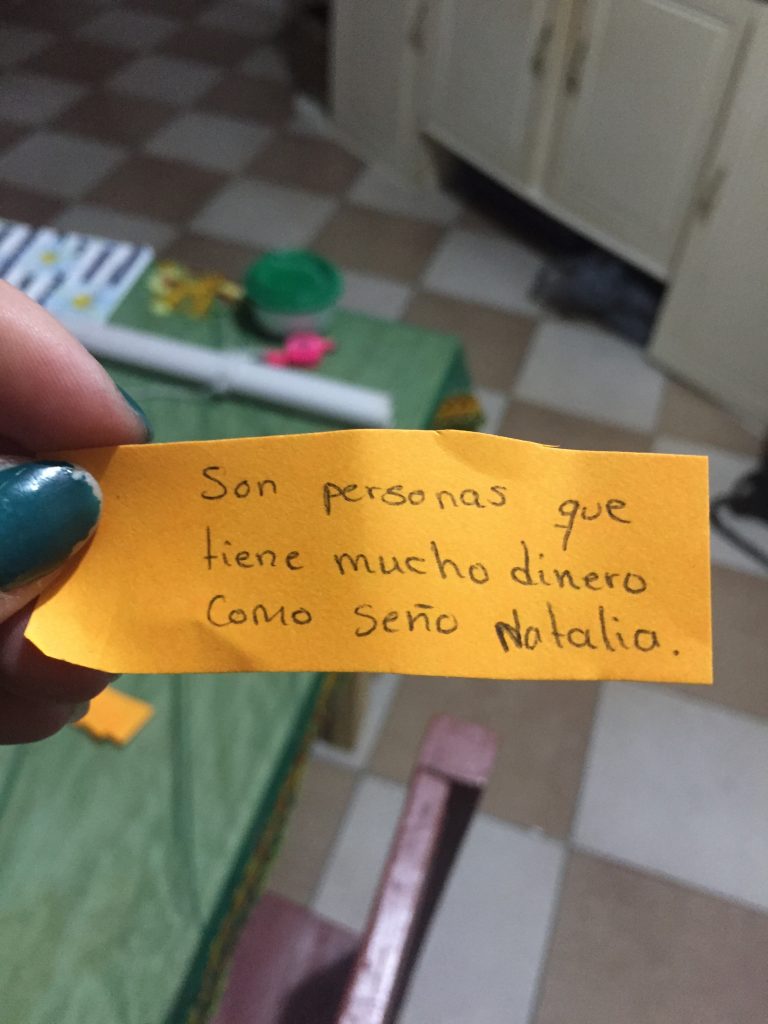 Son personas que
tiene mucho dinero
como seño Natalia.